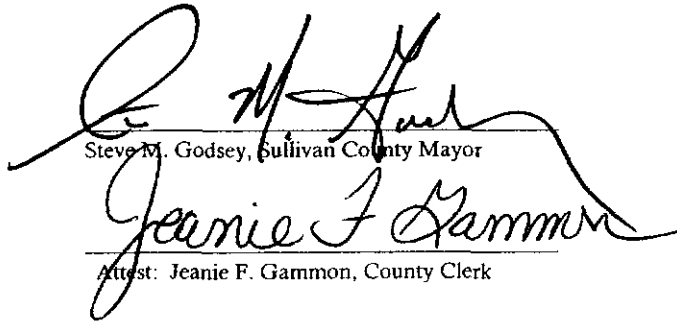 Steve M. Godsey, Sullivan County Mayor
Jeanie F Gammon
Attest: Jeanie F. Gammon, County Clerk